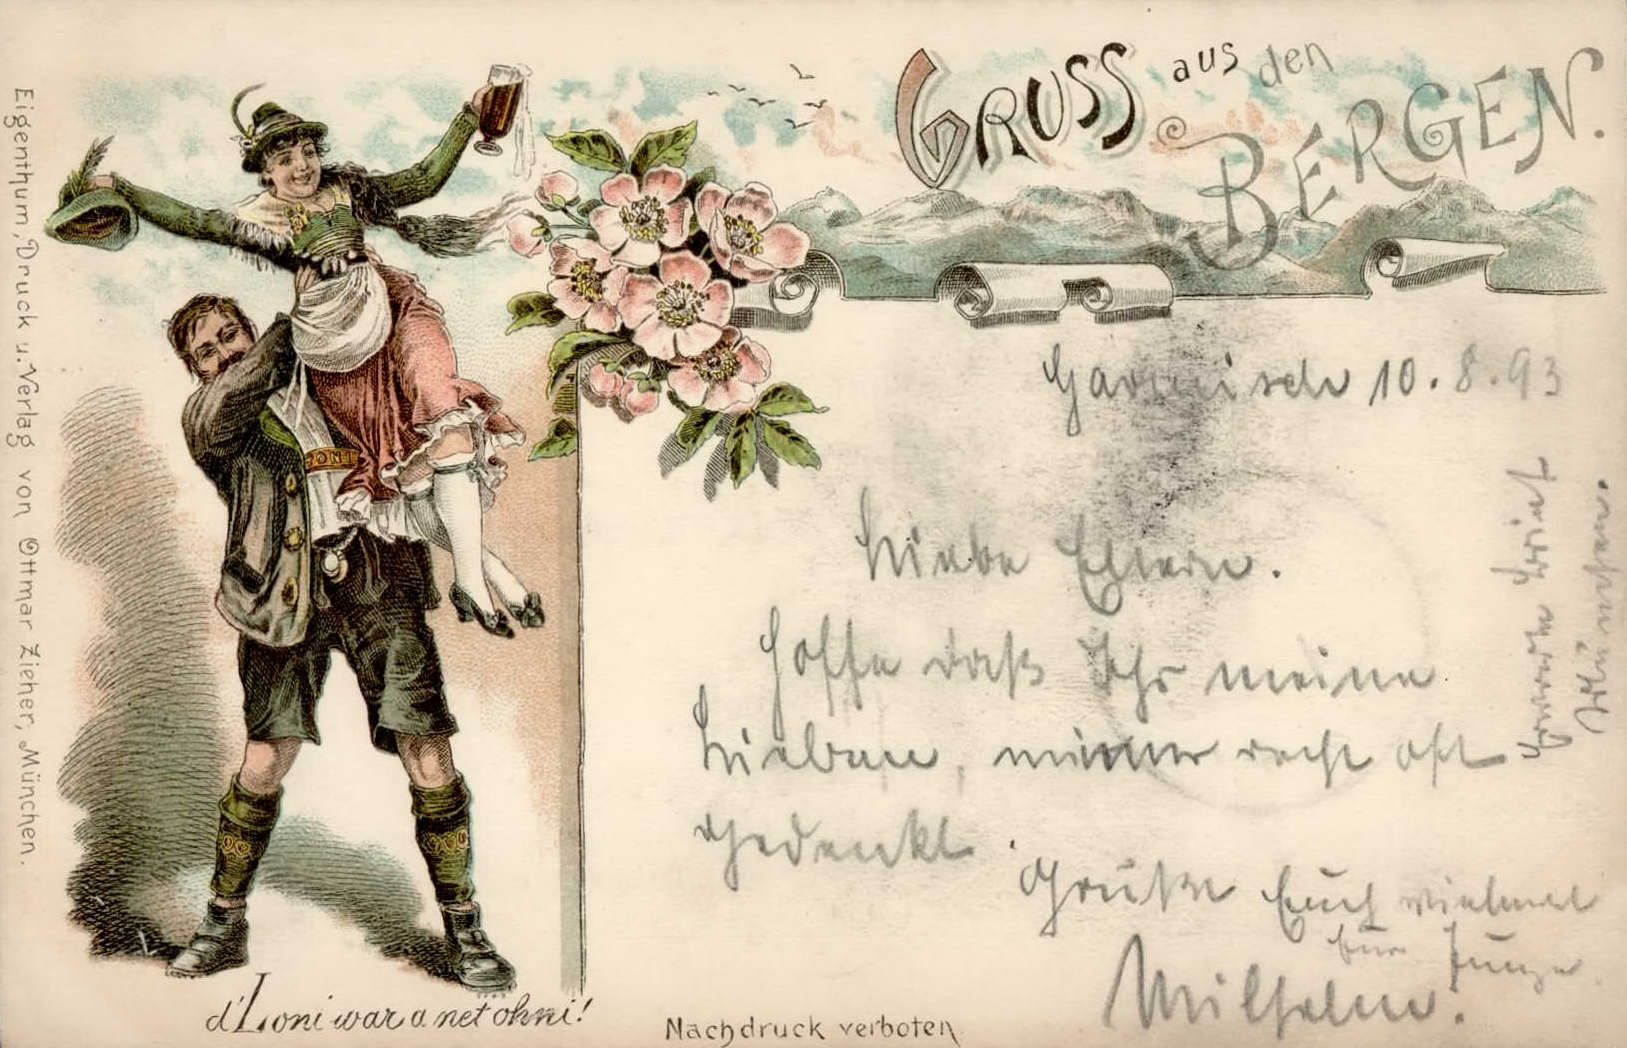 GRUSS aus den
BERGEN.
Garmisch 10.8.93
Liebe Eltern.
Hoffe daß Ihr meine
Lieben, meiner recht oft
gedenkt.
Grüße Euch vielmal
Euer Junge
Wilhelm.
München.
d'Loni war a net ohni!
Nachdruck verboten
Eigenthum, Druck u. Verlag von Ottmar Zieher, München.
LONI